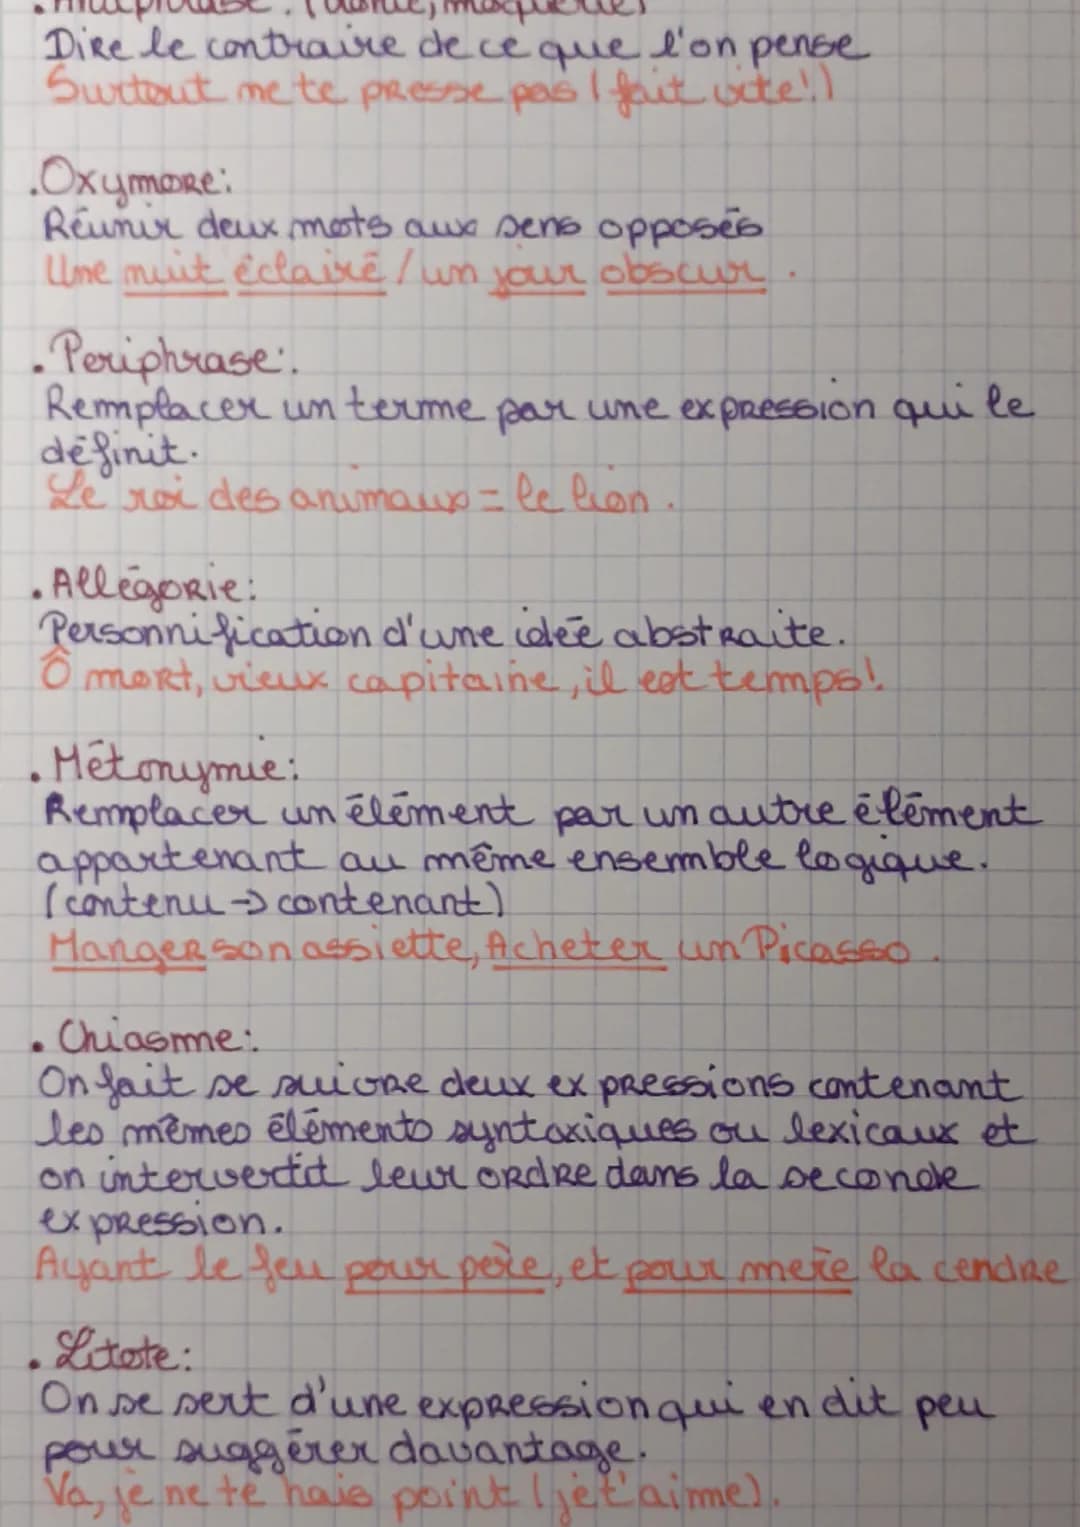 . Antiphrase : (ironie, moquerie)
Dire le contraire de ce que l'on pense
Surtout ne te presse pas (fait vite!)
.Oxymore:
Réunir deux mots aux sens opposés
Une nuit éclairé / un jour obscur.
. Periphrase:
Remplacer un terme par une expression qui le
définit.
Le roi des animaux = le lion.
. Allégorie:
Personnification d'une idée abstraite.
Ô mort, vieux capitaine, il est temps!
. Métonymie:
Remplacer un élément par un autre élément
appartenant au même ensemble logique.
(contenu → contenant)
Manger son assiette, Acheter un Picasso.
. Chiasme:
On fait se suivre deux expressions contenant
les mêmes éléments syntaxiques ou lexicaux et
on intervertit leur ordre dans la seconde
expression.
Ayant le feu pour père, et pour mère la cendre
. Litote:
On se sert d'une expression qui en dit peu
pour suggérer davantage.
Va, je ne te hais point (je t'aime).